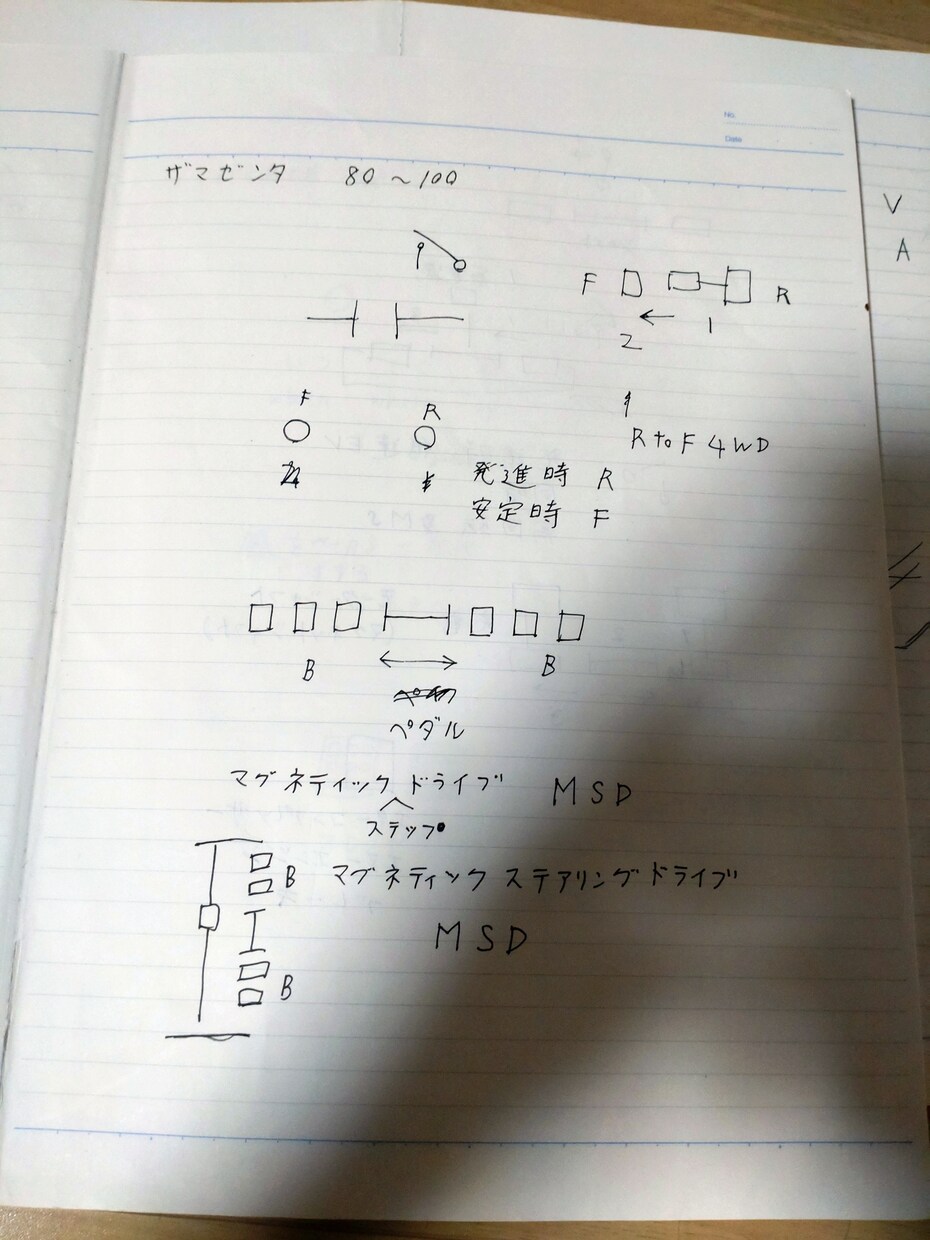 No.
Date
ザマゼンタ 80～100
V
A
F R
2 1
F R
R to F 4WD
発進時 R
安定時 F
B B
ペダル
マグネティック ドライブ MSD
ステップ
B マグネティック ステアリング ドライブ
MSD
B